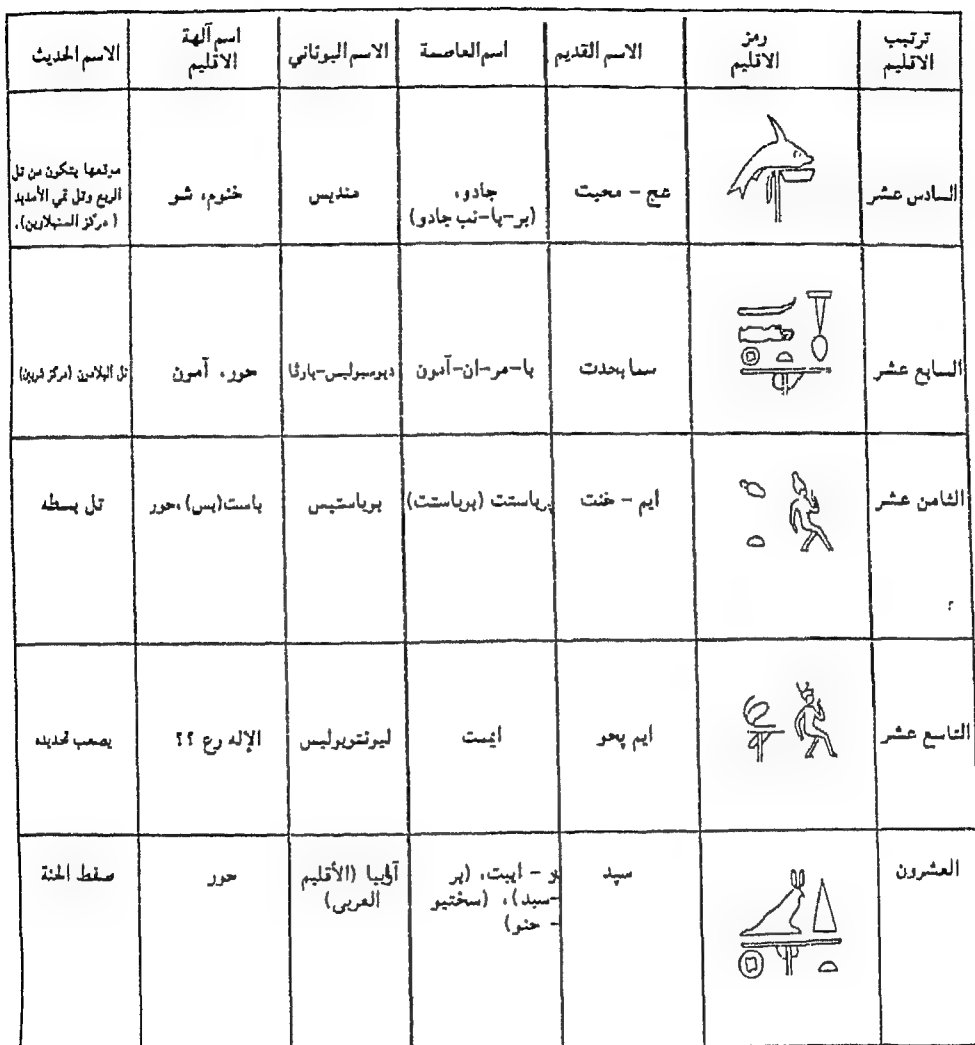 ترتيب الاقليم
رمز الاقليم
الاسم القديم
اسم العاصمة
الاسم اليوناني
اسم آلهة الاقليم
الاسم الحديث
السادس عشر
عج - محيت
جادو،
(بر-با-نب جادو)
منديس
خنوم، شو
موقعها يتكون من تل
الربع وتل تمي الأمديد
(مركز السنبلاوين).
السابع عشر
سما بحدت
با-مر-ان-آمون
ديوسبوليس-بارڤا
حور، آمون
تل البلامون (مركز شربين)
الثامن عشر
ايم - خنت
برباستت (بوباستت)
بوباستيس
باست(بس)،حور
تل بسطه
؟
التاسع عشر
ايم پحو
ايمت
ليونتوبوليس
الإله رع ؟؟
يصعب تحديده
العشرون
سپد
- ايبت، (پر
-سبد)، (سختيو
- حنو)
(الأقليم
العربى)
حور
صفط الحنة